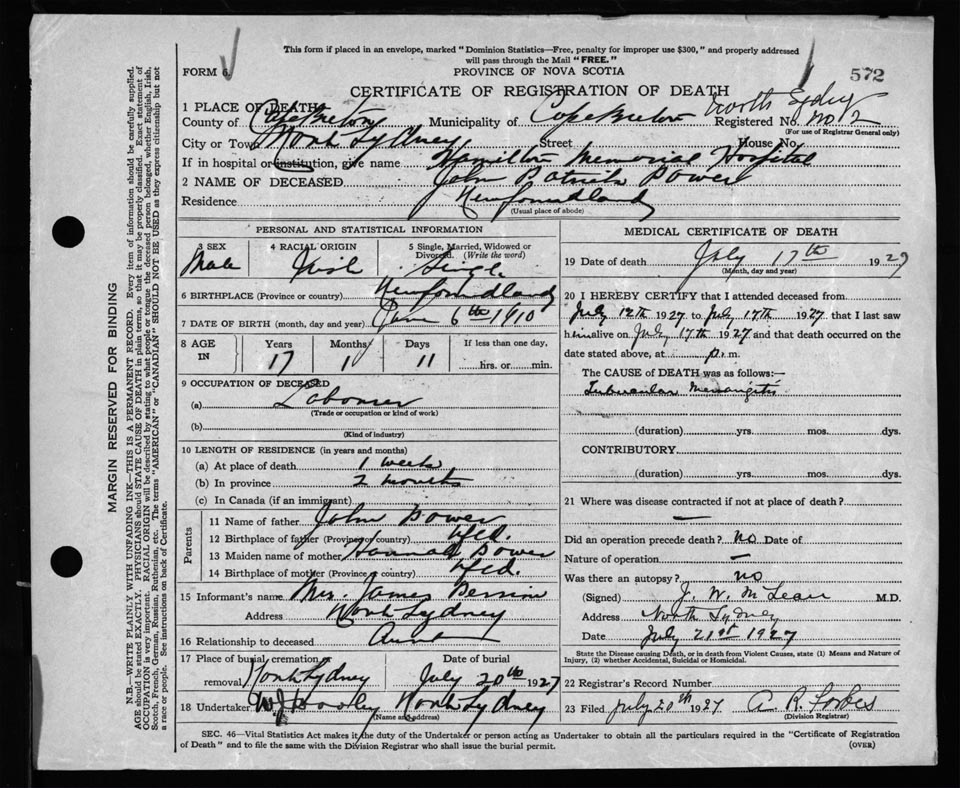 This form if placed in an envelope, marked "Dominion Statistics—Free, penalty for improper use $300," and properly addressed
will pass through the Mail "FREE."
FORM 6.
PROVINCE OF NOVA SCOTIA
572
CERTIFICATE OF REGISTRATION OF DEATH
North Sydney
1 PLACE OF DEATH
County of Cape Breton Municipality of Cape Breton Registered No. No 2
(For use of Registrar General only)
City or Town North Sydney Street House No.
If in hospital or institution, give name Hamilton Memorial Hospital
2 NAME OF DECEASED John Patrick Power
Residence Newfoundland
(Usual place of abode)
PERSONAL AND STATISTICAL INFORMATION
3 SEX Male
4 RACIAL ORIGIN Irish
5 Single, Married, Widowed or Divorced. (Write the word) Single
6 BIRTHPLACE (Province or country) Newfoundland
7 DATE OF BIRTH (month, day and year) June 6th 1910
8 AGE IN Years 17 Months 1 Days 11 If less than one day, hrs. or min.
9 OCCUPATION OF DECEASED
(a) Labourer
(Trade or occupation or kind of work)
(b)
(Kind of industry)
10 LENGTH OF RESIDENCE (in years and months)
(a) At place of death 1 week
(b) In province 2 months
(c) In Canada (if an immigrant)
Parents
11 Name of father John Power
12 Birthplace of father (Province or country) Nfld.
13 Maiden name of mother Hannah Power
14 Birthplace of mother (Province or country) Nfld.
15 Informant's name Mrs. James
Address North Sydney
16 Relationship to deceased Aunt
17 Place of burial, cremation or removal North Sydney Date of burial July 20th 1927
18 Undertaker W J North Sydney
(Name and address)
MEDICAL CERTIFICATE OF DEATH
19 Date of death July 17th 1927
(Month, day and year)
20 I HEREBY CERTIFY that I attended deceased from
July 12th 1927 to July 17th 1927 that I last saw
him alive on July 17th 1927 and that death occurred on the
date stated above, at p. m.
The CAUSE of DEATH was as follows:—
Tubercular Meningitis
(duration) yrs. mos. dys.
CONTRIBUTORY
(duration) yrs. mos. dys.
21 Where was disease contracted if not at place of death?
—
Did an operation precede death? no Date of
Nature of operation —
Was there an autopsy? no
(Signed) J. W. McLean M.D.
Address North Sydney
Date July 21st 1927
State the Disease causing Death, or in death from Violent Causes, state (1) Means and Nature of
Injury, (2) whether Accidental, Suicidal or Homicidal.
22 Registrar's Record Number
23 Filed July 20th 1927 A. R. Forbes
(Division Registrar)
SEC. 46—Vital Statistics Act makes it the duty of the Undertaker or person acting as Undertaker to obtain all the particulars required in the "Certificate of Registration
of Death" and to file the same with the Division Registrar who shall issue the burial permit.
(OVER)
MARGIN RESERVED FOR BINDING
N.B.—WRITE PLAINLY WITH UNFADING INK—THIS IS A PERMANENT RECORD. Every item of information should be carefully supplied.
AGE should be stated EXACTLY. PHYSICIANS should STATE CAUSE OF DEATH in plain terms, so that it may be properly classified. Exact statement of
OCCUPATION is very important. RACIAL ORIGIN will be described by stating to what people or tongue the deceased person belonged, whether English, Irish,
Scotch, French, German, Russian, Ruthenian, etc. The terms "AMERICAN" or "CANADIAN" SHOULD NOT BE USED as they express citizenship but not
a race or people. See instructions on back of Certificate.